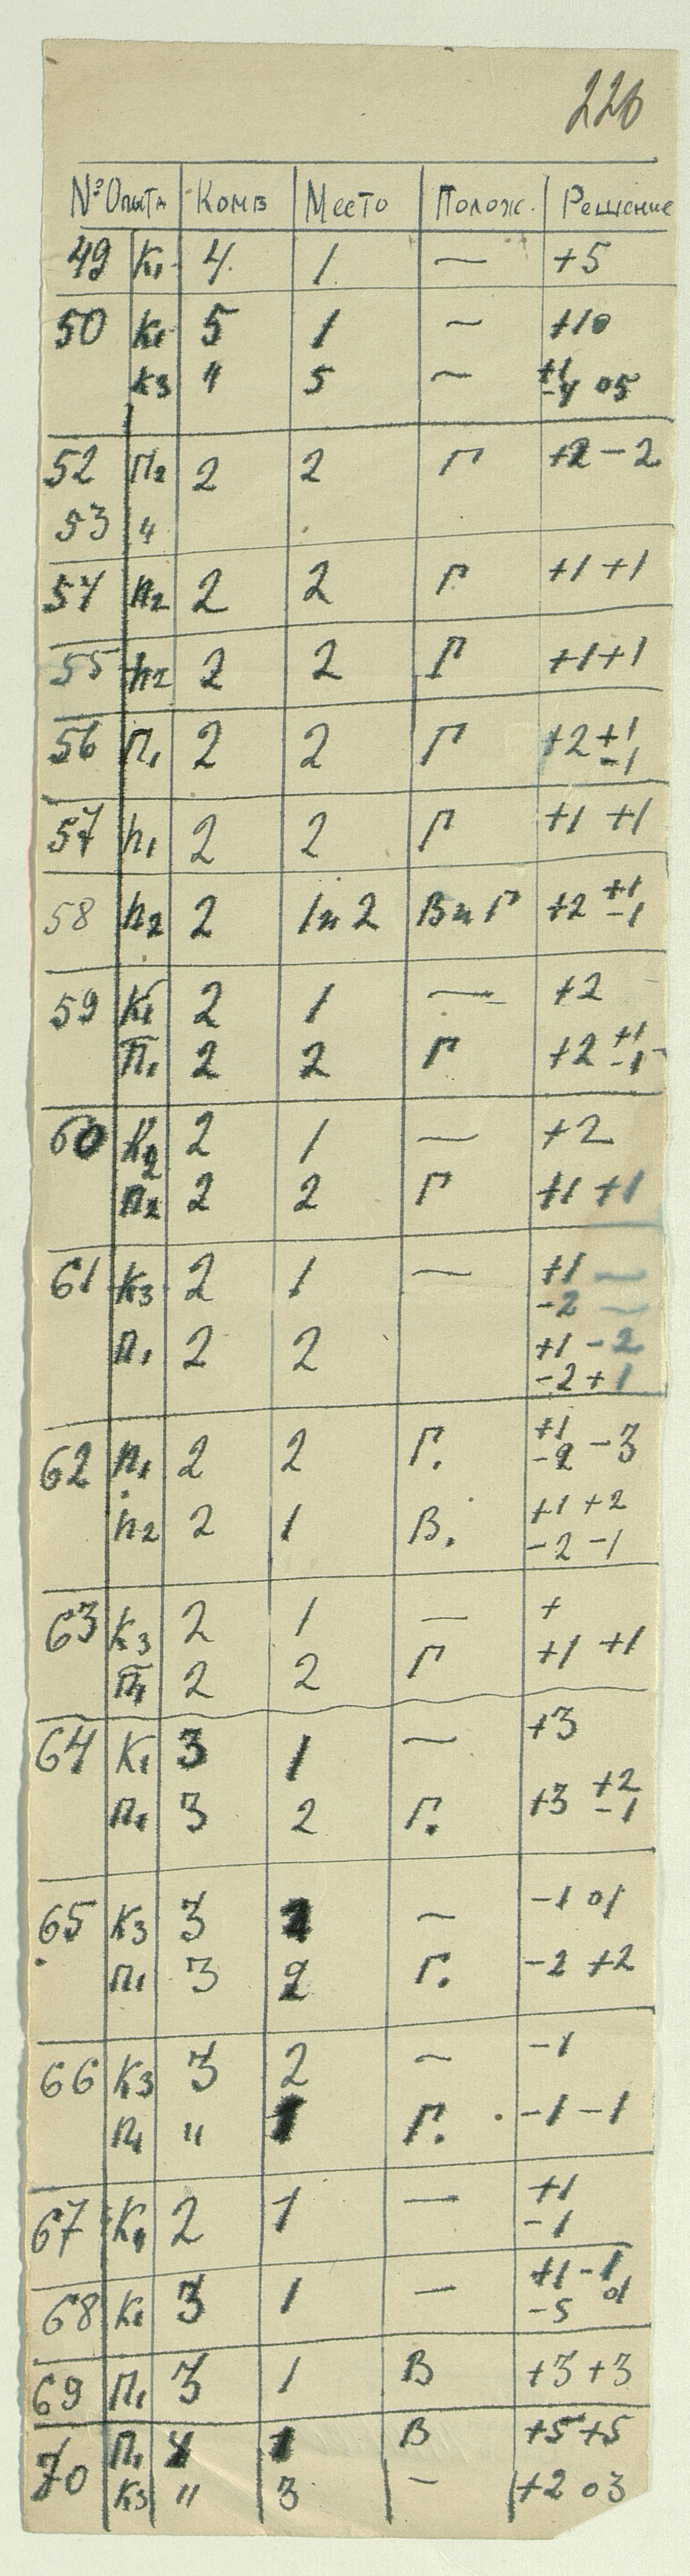 226
№ Опыта Комв Место Полож. Решение
49 К1 4 1 — +5
50 К1 5 1 — +10
К3 " 5 — +1 -4 05
52 П2 2 2 Г +2 -2
53 "
54 П2 2 2 Г +1 +1
55 П2 2 2 Г +1 +1
56 П1 2 2 Г +2 +1 -1
57 П1 2 2 Г +1 +1
58 П2 2 1 и 2 В и Г +2 +1 -1
59 К1 2 1 — +2
П1 2 2 Г +2 +1 -1
60 К2 2 1 — +2
П2 2 2 Г +1 +1
61 К3 2 1 — +1 —
-2 —
П1 2 2 +1 -2
-2 +1
62 П1 2 2 Г. +1 -2 -3
П2 2 1 В. +1 +2
-2 -1
63 К3 2 1 — +
П1 2 2 Г +1 +1
64 К1 3 1 — +3
П1 3 2 Г. +3 +2 -1
65 К3 3 — -1 01
П1 3 2 Г. -2 +2
66 К3 3 2 — -1
П1 " 1 Г. -1 -1
67 К1 2 1 — +1
-1
68 К1 3 1 — +1 -1
-5 01
69 П1 3 1 В +3 +3
70 П1 4 1 В +5 +5
К3 " 3 — +2 03